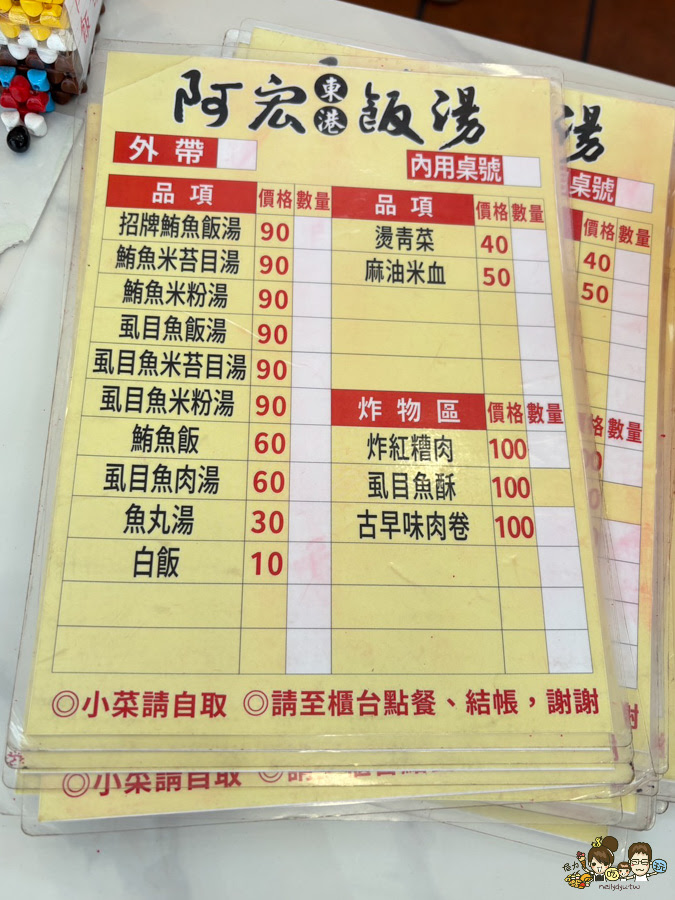 阿宏東港飯湯
外帶
內用桌號
品項 價格 數量
招牌鮪魚飯湯 90
鮪魚米苔目湯 90
鮪魚米粉湯 90
虱目魚飯湯 90
虱目魚米苔目湯 90
虱目魚米粉湯 90
鮪魚飯 60
虱目魚肉湯 60
魚丸湯 30
白飯 10
品項 價格 數量
燙青菜 40
麻油米血 50
炸物區 價格 數量
炸紅糟肉 100
虱目魚酥 100
古早味肉卷 100
◎小菜請自取 ◎請至櫃台點餐、結帳，謝謝
湯
桌號
價格 數量
40
50
格 數量
謝
◎小菜請自取
neilydyu.tw